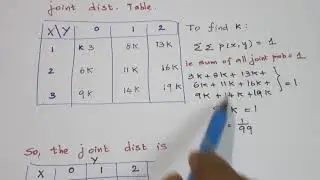 joint dist. Table.
X\Y 0 1 2
1 k 3 8k 13k
2 11k 16k
3 9k 14k 19k
To find k :
ΣΣ p(x,y) = 1
ie sum of all joint prob = 1
3k + 8k + 13k +
6k + 11k + 16k +
9k + 14k + 19k } = 1
k = 1
= 1/99
So, the joint dist is
Y
X 0 1 2